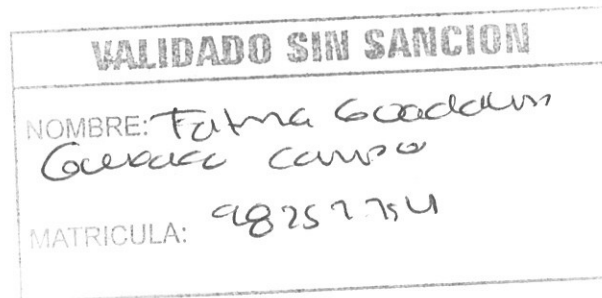 VALIDADO SIN SANCION
NOMBRE: Fatima Guadalupe
Campo
MATRICULA: 98252754